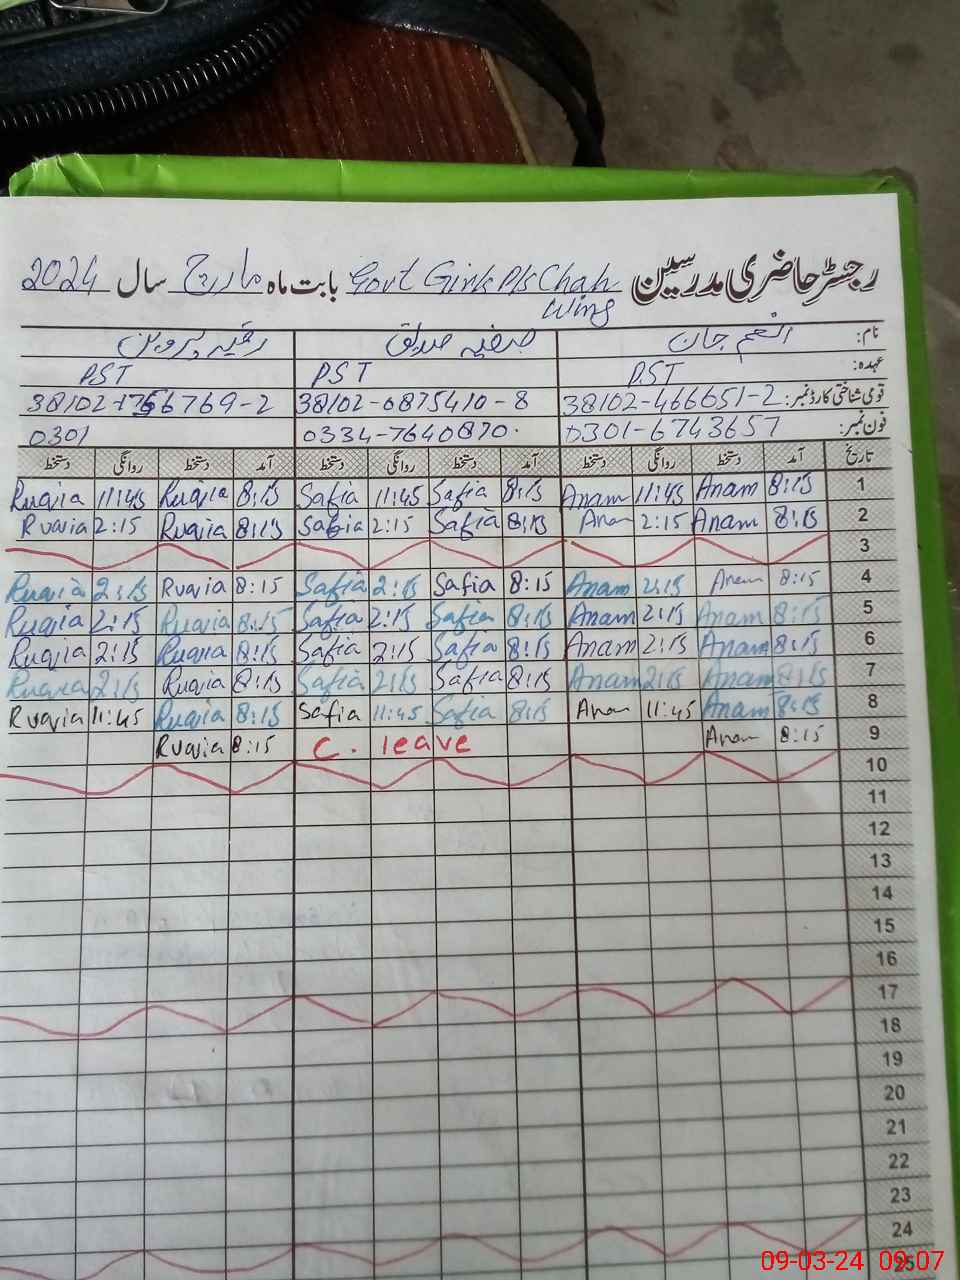 رجسٹر حاضری مدرسین Govt Girls P/s Chah بابت ماہ مارچ سال 2024
Wing
نام: انعم جان صفیہ صدیق رقیہ پروین
عہدہ: PST PST PST
قومی شناختی کارڈ نمبر: 38102-466651-2 38102-0875410-8 38102-1756769-2
فون نمبر: 0301-6743657 0334-7640870. 0301
تاریخ آمد دستخط روانگی دستخط آمد دستخط روانگی دستخط آمد دستخط روانگی دستخط
Ruqia 11:45 Ruqia 8:15 Safia 11:45 Safia 8:15 Anam 11:45 Anam 8:15 1
Ruqia 2:15 Ruqia 8:15 Safia 2:15 Safia 8:15 Anam 2:15 Anam 8:15 2
3
Ruqia 2:15 Ruqia 8:15 Safia 2:15 Safia 8:15 Anam 2:15 Anam 8:15 4
Ruqia 2:15 Ruqia 8:15 Safia 2:15 Safia 8:15 Anam 2:15 Anam 8:15 5
Ruqia 2:15 Ruqia 8:15 Safia 2:15 Safia 8:15 Anam 2:15 Anam 8:15 6
Ruqia 2:15 Ruqia 8:15 Safia 2:15 Safia 8:15 Anam 2:15 Anam 8:15 7
Ruqia 11:45 Ruqia 8:15 Safia 11:45 Safia 8:15 Anam 11:45 Anam 8:15 8
Ruqia 8:15 C. leave Anam 8:15 9
10
11
12
13
14
15
16
17
18
19
20
21
22
23
24
25
09-03-24 09:07